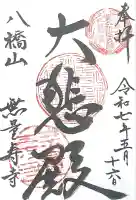 奉拝
令和七年五月
十六日
大悲殿
八橋山
無量寿寺